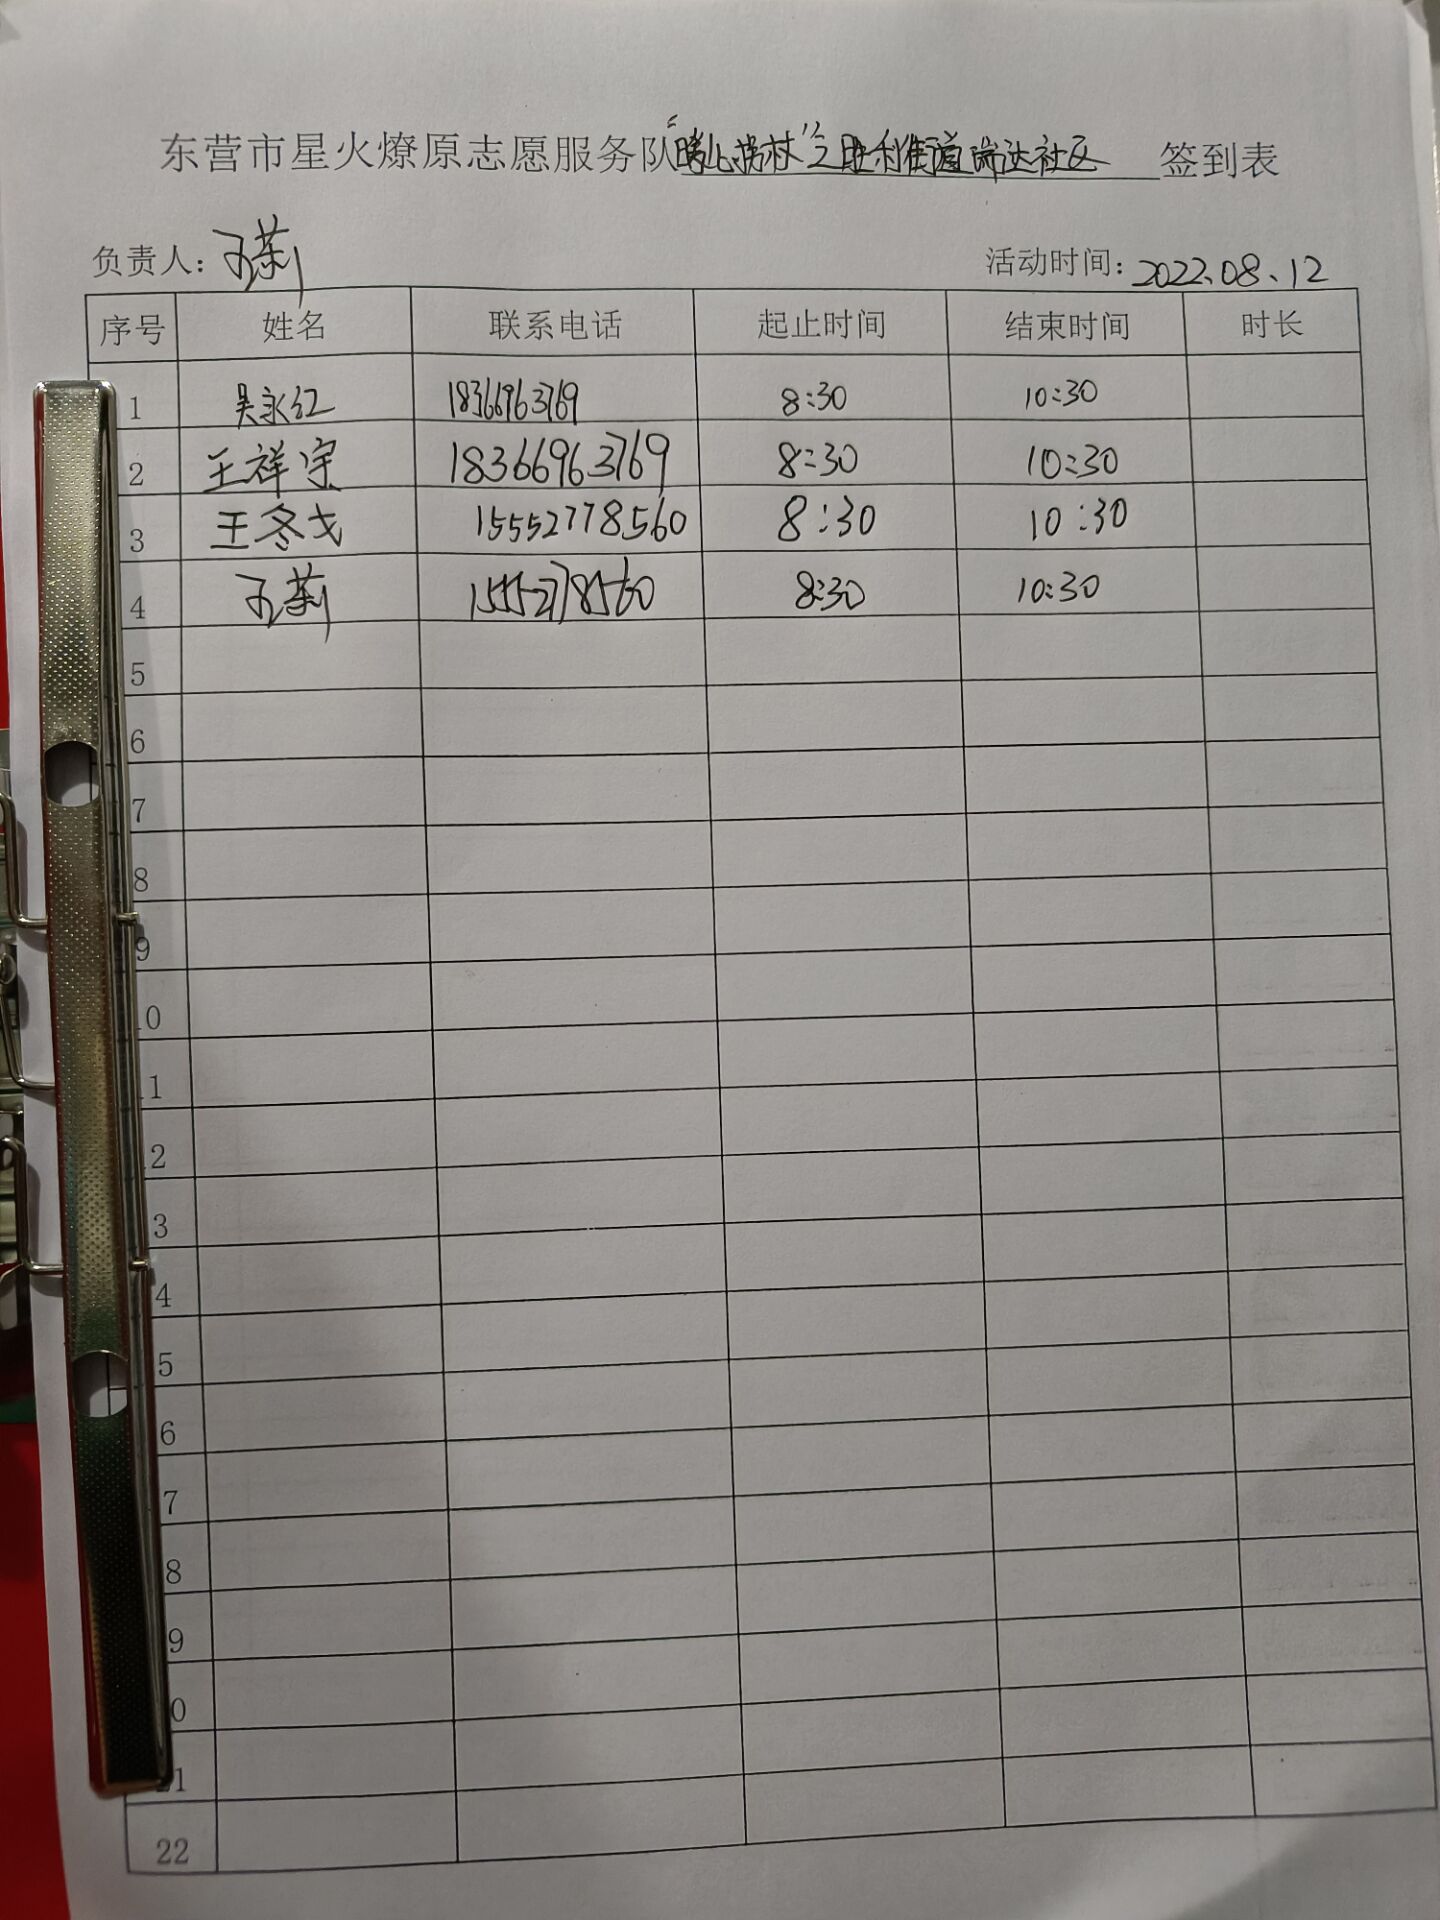 东营市星火燎原志愿服务队“ ”之胜利街道瑞达社区 签到表
负责人: 活动时间: 2022.08.12
序号 姓名 联系电话 起止时间 结束时间 时长
1 吴永红 18366963769 8:30 10:30
2 王祥宇 18366963769 8:30 10:30
3 王冬戈 15552778560 8:30 10:30
4 8:30 10:30
5
6
7
8
9
10
11
12
13
14
15
16
17
18
19
20
21
22